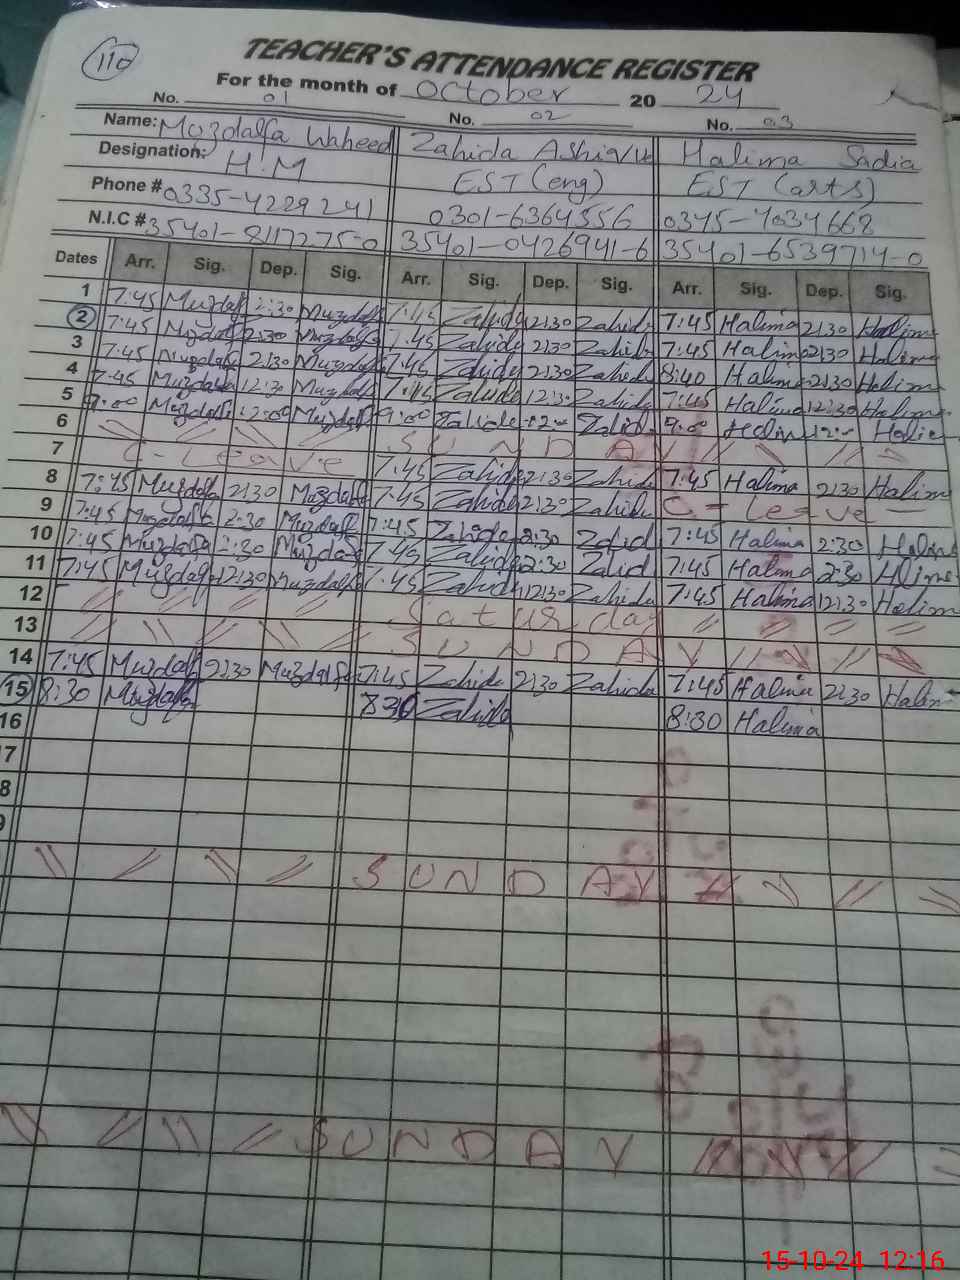 110
TEACHER'S ATTENDANCE REGISTER
For the month of October 20 24
No. 01 No. 02 No. 03
Name: Muzdalfa Waheed Zahida Ashiq Halima Sadia
Designation: H.M EST (eng) EST (arts)
Phone # 0335-4229241 0301-6364356 0345-4034668
N.I.C # 35401-8117275-0 35401-0426941-6 35401-6539714-0
Dates Arr. Sig. Dep. Sig. Arr. Sig. Dep. Sig. Arr. Sig. Dep. Sig.
1 7:45 Muzdalfa 2:30 Muzdalfa 7:45 Zahida 2:30 Zahida 7:45 Halima 2:30 Halima
2 7:45 Muzdalfa 2:30 Muzdalfa 7:45 Zahida 2:30 Zahida 7:45 Halima 2:30 Halima
3 7:45 Muzdalfa 2:30 Muzdalfa 7:45 Zahida 2:30 Zahida 8:40 Halima 2:30 Halima
4 7:45 Muzdalfa 12:30 Muzdalfa 7:45 Zahida 12:30 Zahida 7:45 Halima 12:30 Halima
5 9:00 Muzdalfa 12:00 Muzdalfa 9:00 Zahida Zahida 9:00 Halima Halima
6 SUNDAY
7 C-Leave 7:45 Zahida 2:30 Zahida 7:45 Halima 2:30 Halima
8 7:45 Muzdalfa 2:30 Muzdalfa 7:45 Zahida 2:30 Zahida C-Leave
9 7:45 Muzdalfa 2:30 Muzdalfa 7:45 Zahida 2:30 Zahida 7:45 Halima 2:30 Halima
10 7:45 Muzdalfa 2:30 Muzdalfa 7:45 Zahida 2:30 Zahida 7:45 Halima 2:30 Halima
11 7:45 Muzdalfa 12:30 Muzdalfa 7:45 Zahida 12:30 Zahida 7:45 Halima 12:30 Halima
12 Saturday
13 SUNDAY
14 7:45 Muzdalfa 2:30 Muzdalfa 7:45 Zahida 2:30 Zahida 7:45 Halima 2:30 Halima
15 8:30 Muzdalfa 8:30 Zahida 8:30 Halima
16
17
8
9
SUNDAY
SUNDAY
15-10-24 12:16